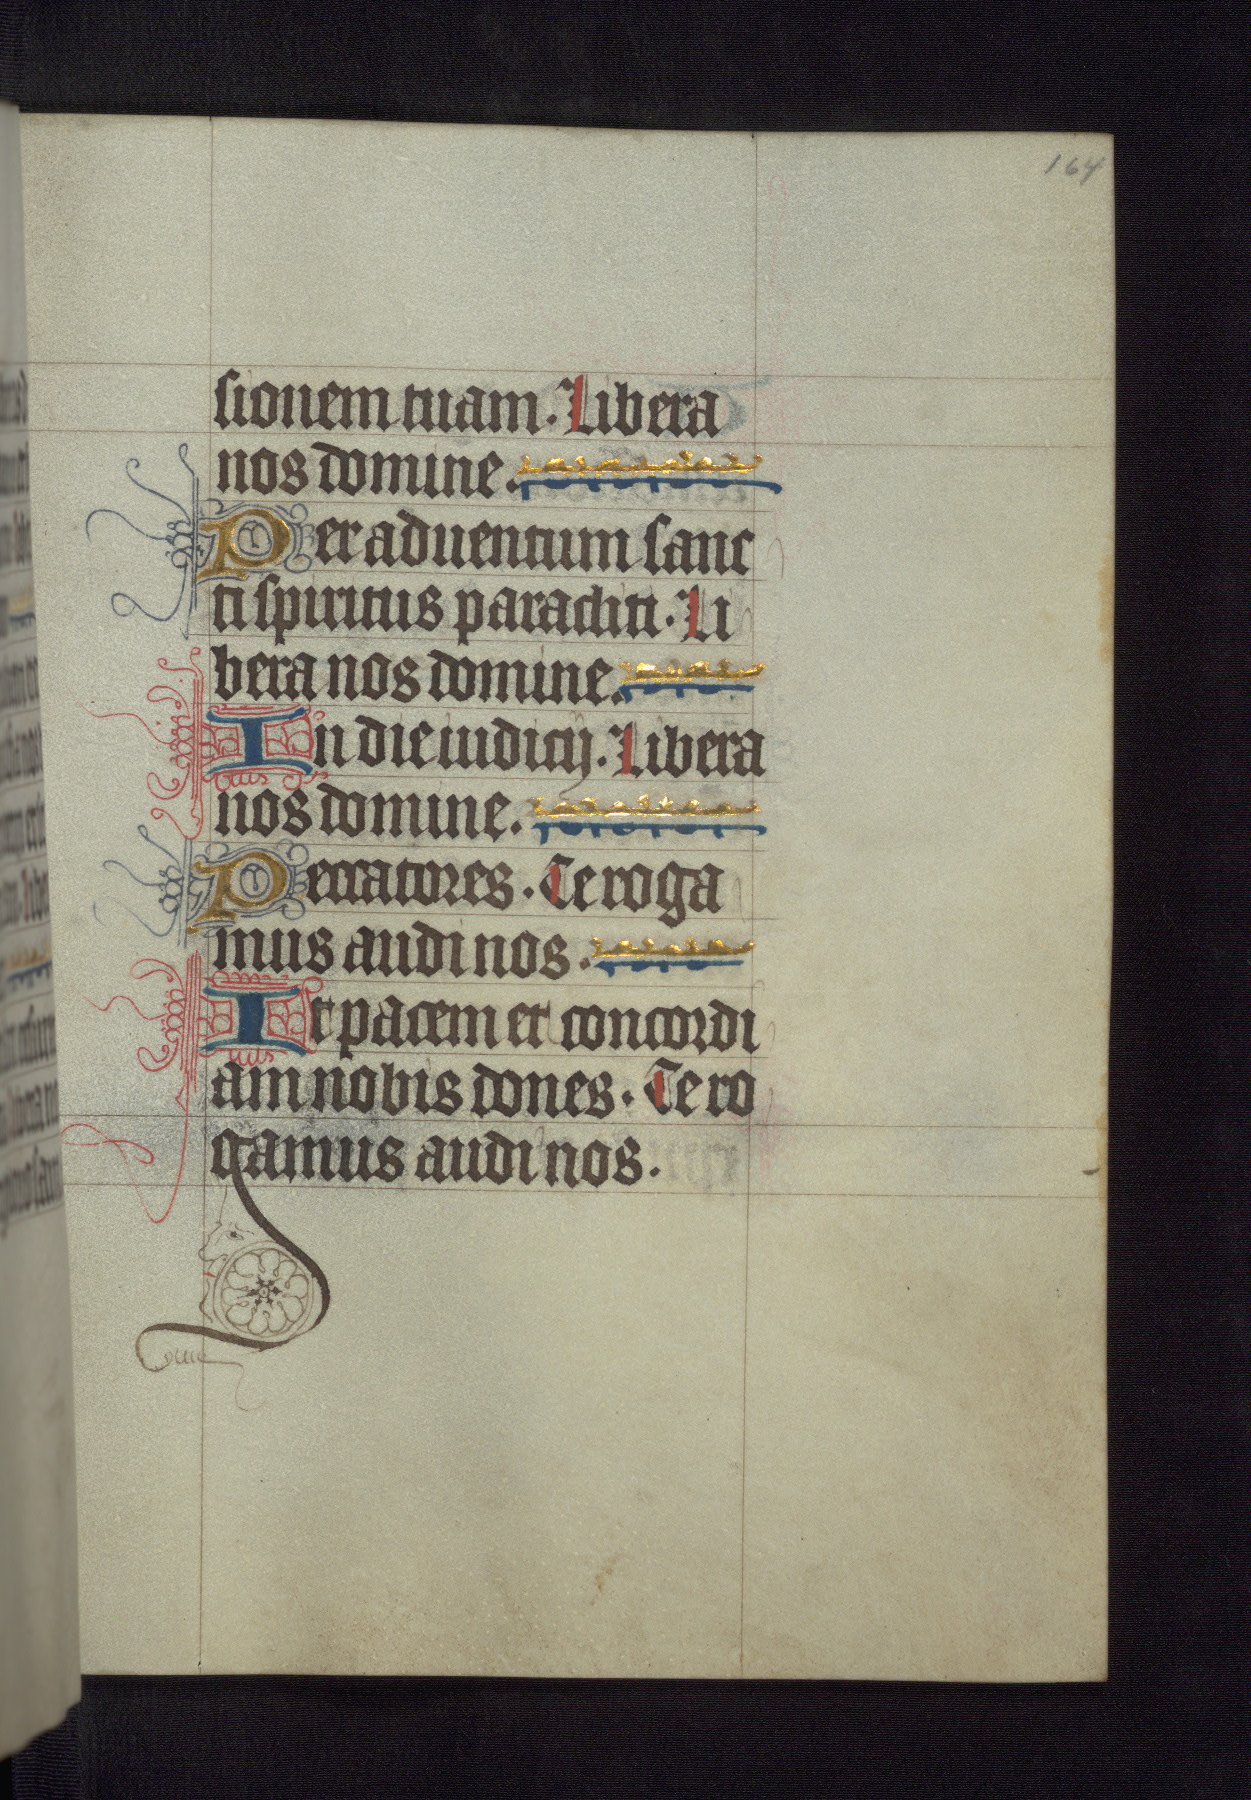 164
sionem tuam. Libera
nos domine.
Per aduentum sanc
ti spiritus paracliti. Li
bera nos domine.
In die iudicij. Libera
nos domine.
Peccatores. Te roga
mus audi nos.
It pacem et concordi
am nobis dones. Te ro
gamus audi nos.